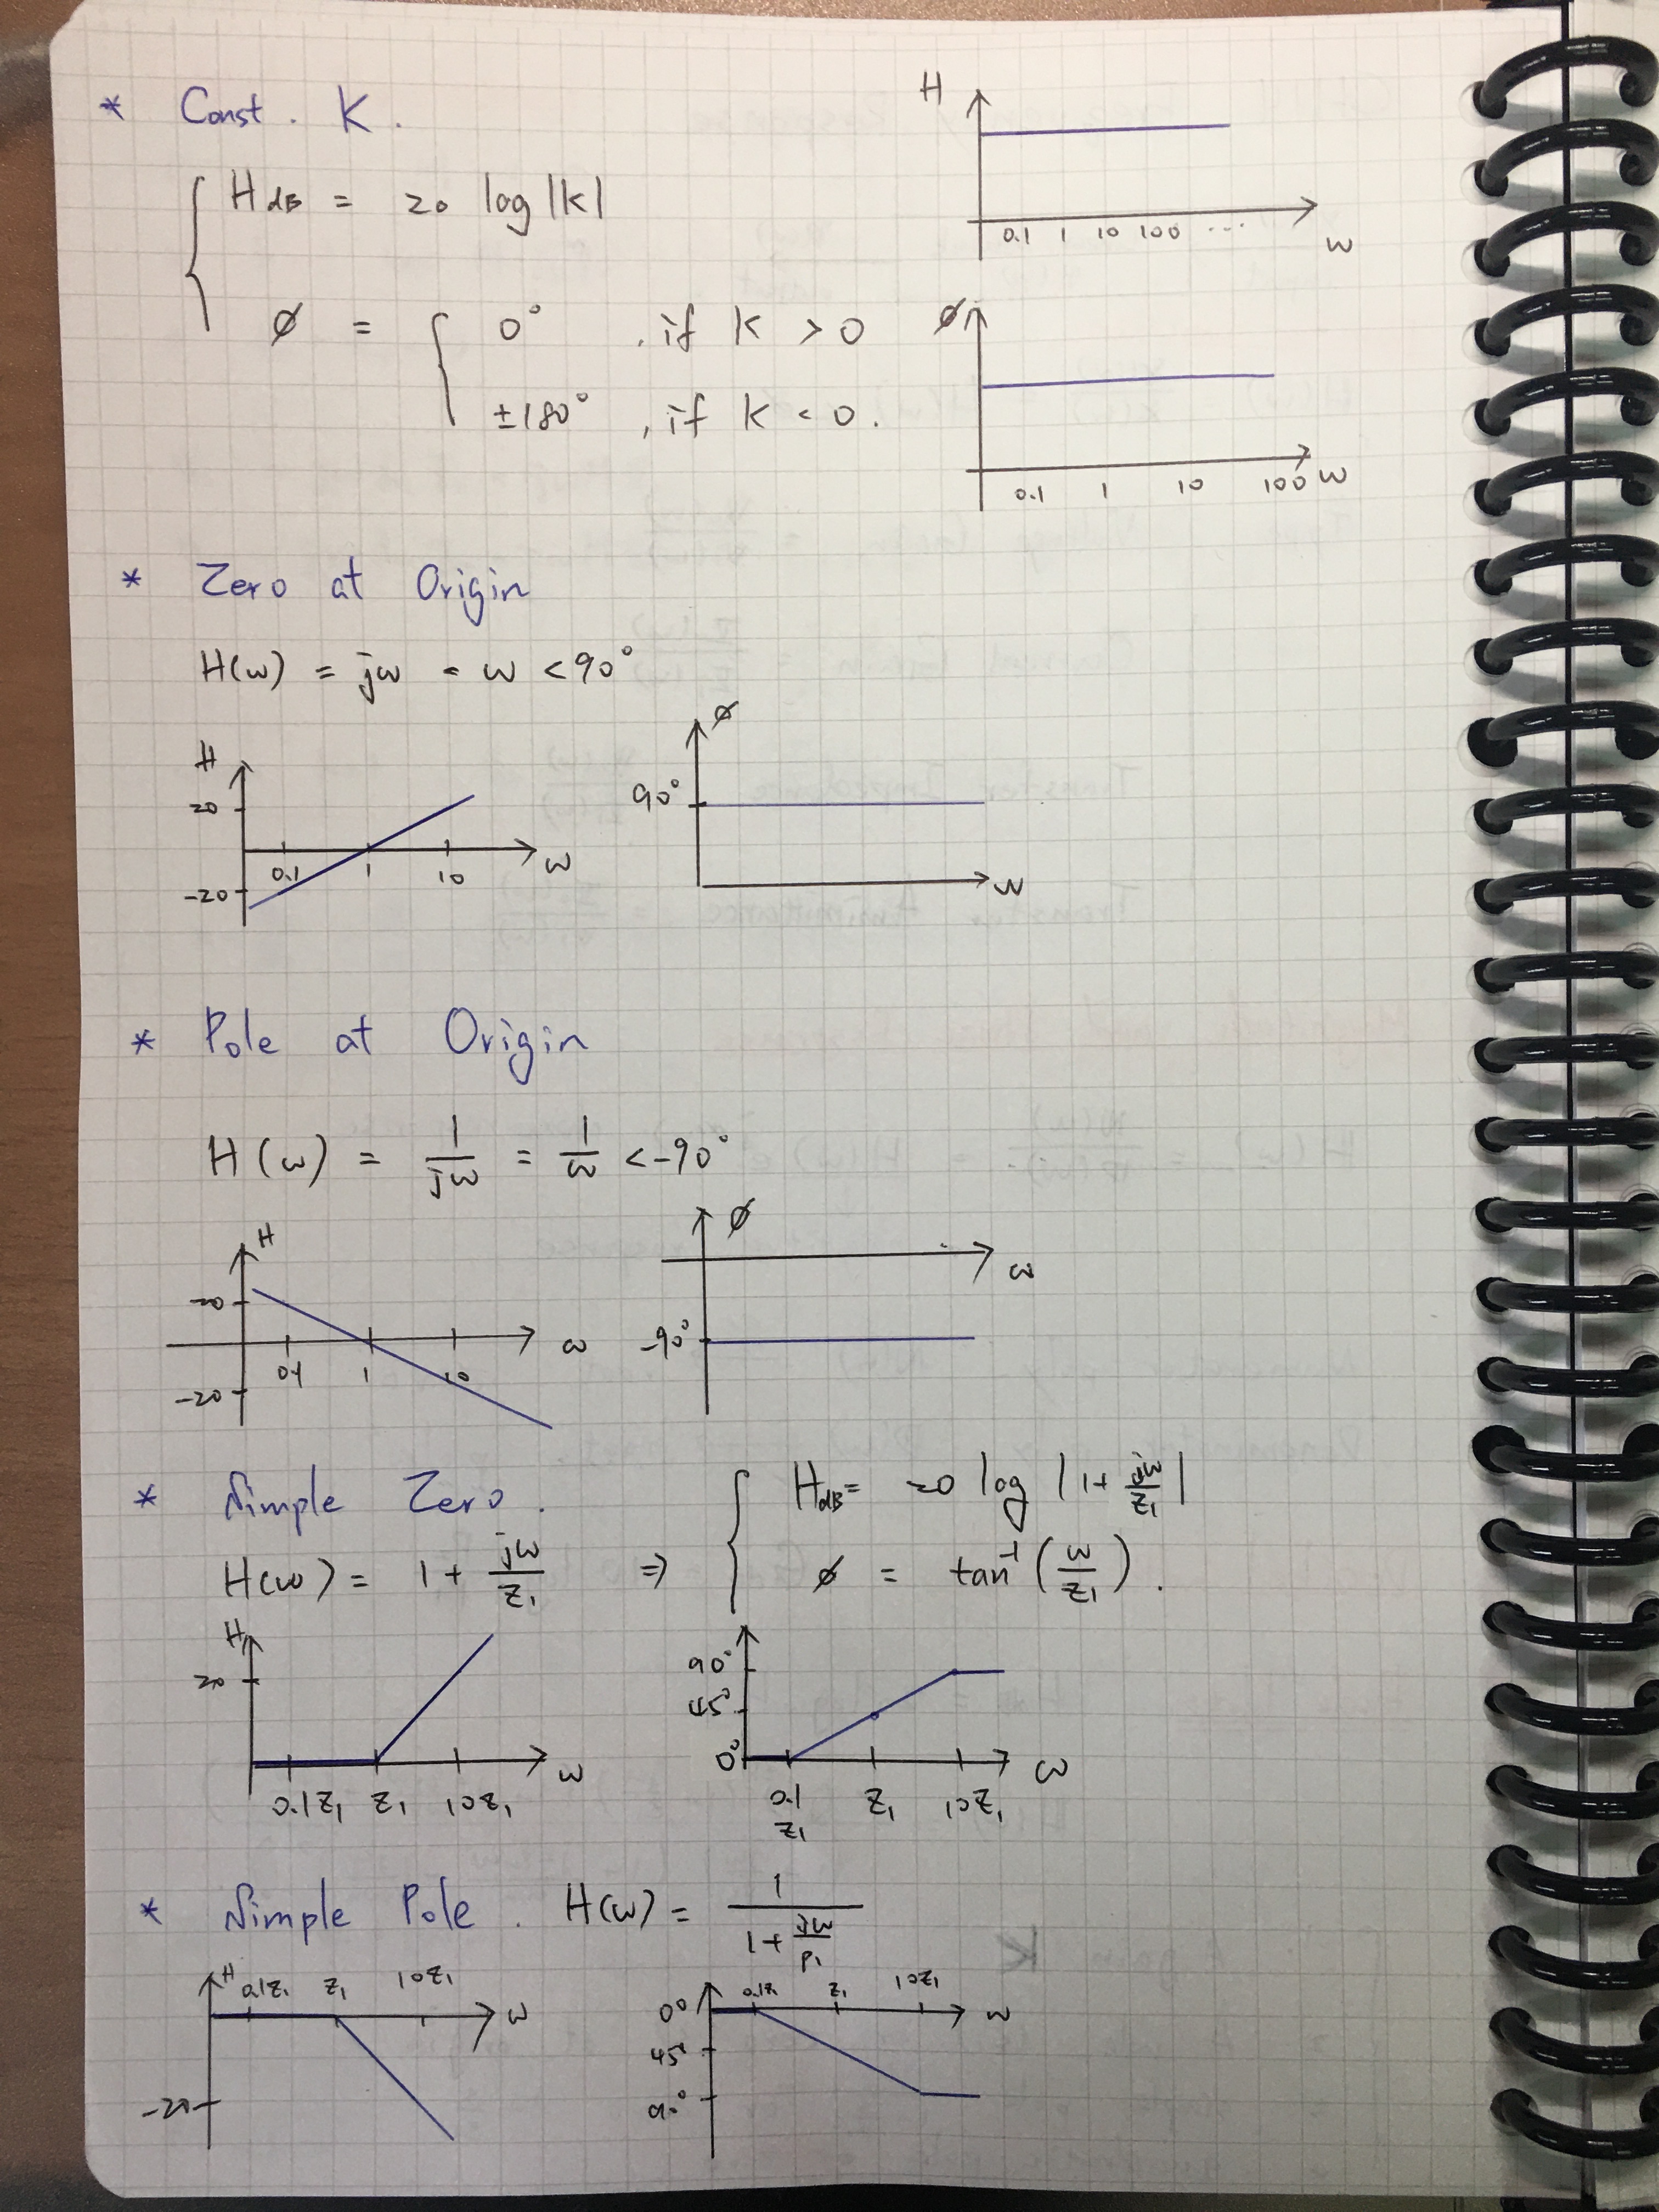 * Const. K.
H
0.1 1 10 100 ...
w
H dB = 20 log |K|
ø = { 0° , if K > 0
±180° , if K < 0.
ø
0.1 1 10 100 w
* Zero at Origin
H(w) = jw = w < 90°
H
20
0.1 1 10
w
-20
ø
90°
w
* Pole at Origin
H(w) = 1/jw = 1/w < -90°
H
20
0.1 1 10
w
-20
ø
w
-90°
* Simple Zero.
H(w) = 1 + jw/z₁ ⇒ { H dB = 20 log |1 + jw/z₁|
ø = tan⁻¹ (w/z₁).
H
20
0.1z₁ z₁ 10z₁
w
90°
45°
0°
0.1z₁ z₁ 10z₁
w
* Simple Pole. H(w) = 1/(1 + jw/p₁)
H 0.1z₁ z₁ 10z₁
w
-20
0° 0.1z₁ z₁ 10z₁
w
45°
90°